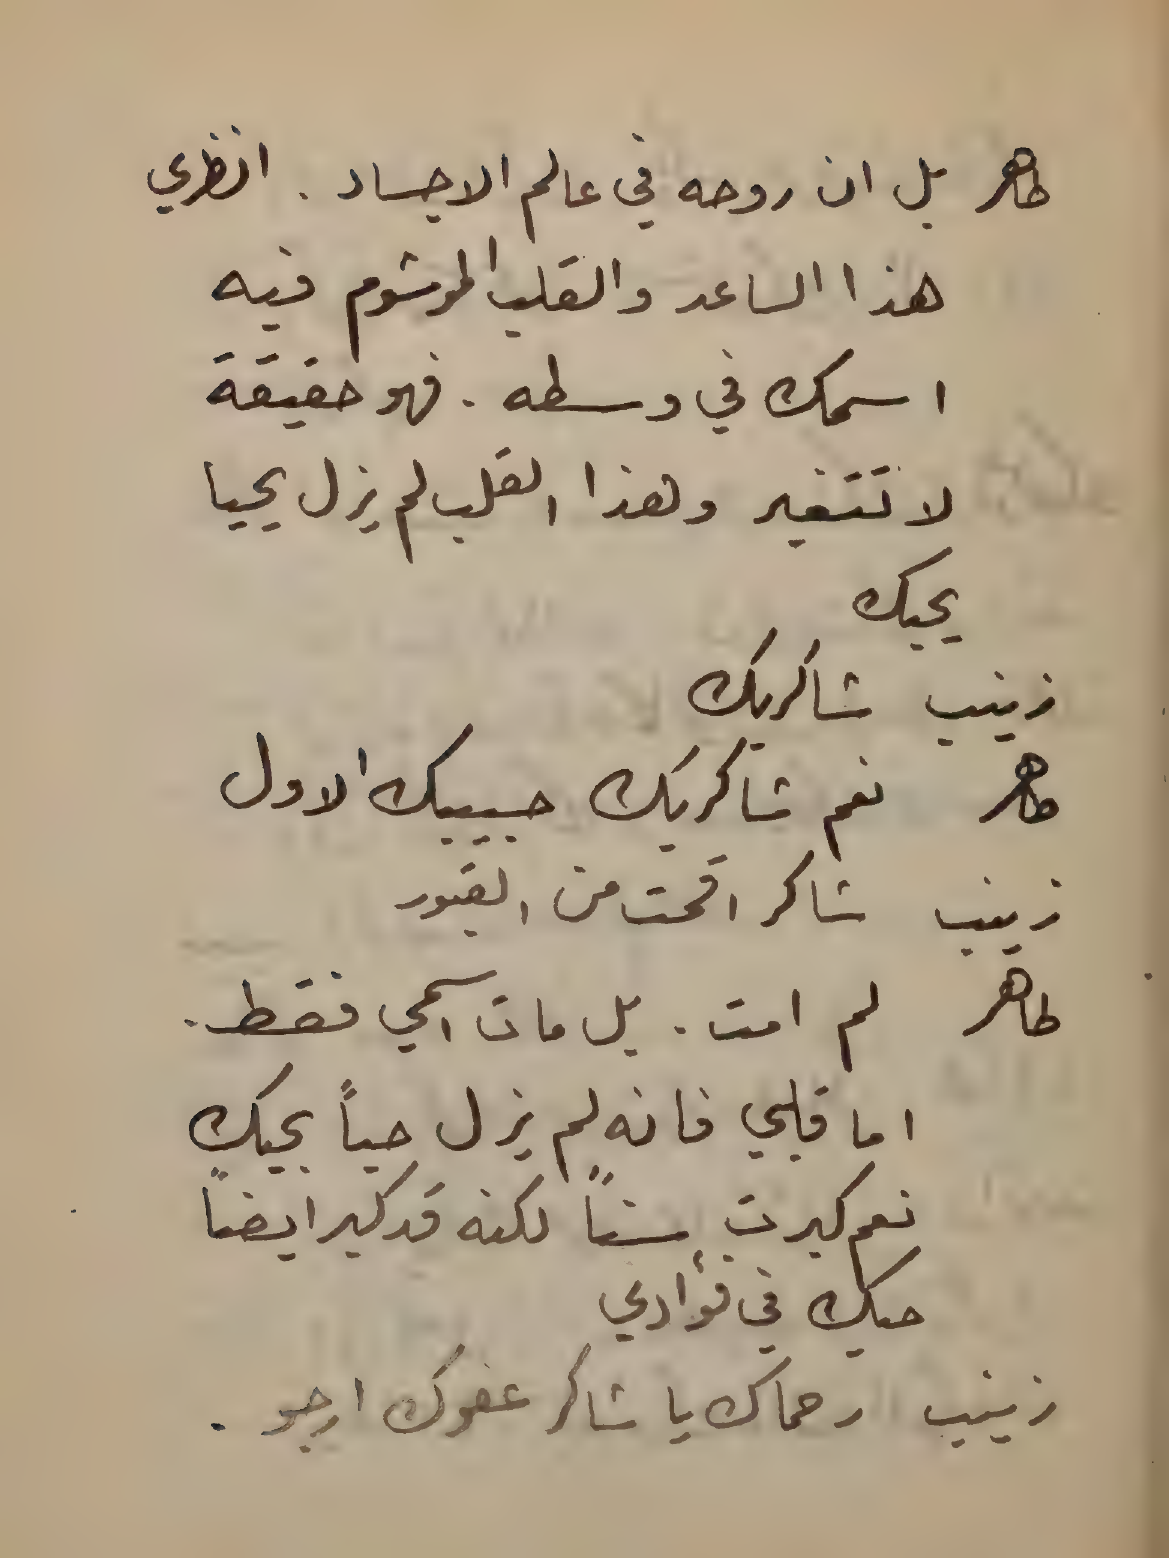 طاهر بل ان روحه في عالم الاجساد . انظري
هذا الساعد والقلب الموشوم فيه
اسمك في وسطه . فهو حقيقة
لا تتغير وهذا القلب لم يزل يحيا
بحبك
زينب شاكر بك
طاهر نعم شاكر بك حبيبك الاول
زينب شاكر اقمت من القبور
طاهر لم امت . بل مات اسمي فقط .
اما قلبي فانه لم يزل حياً بحبك
نعم كبرت سناً لكنه قد كبر ايضاً
حبك في فؤادي
زينب رحماك يا شاكر عفوك ارجو .